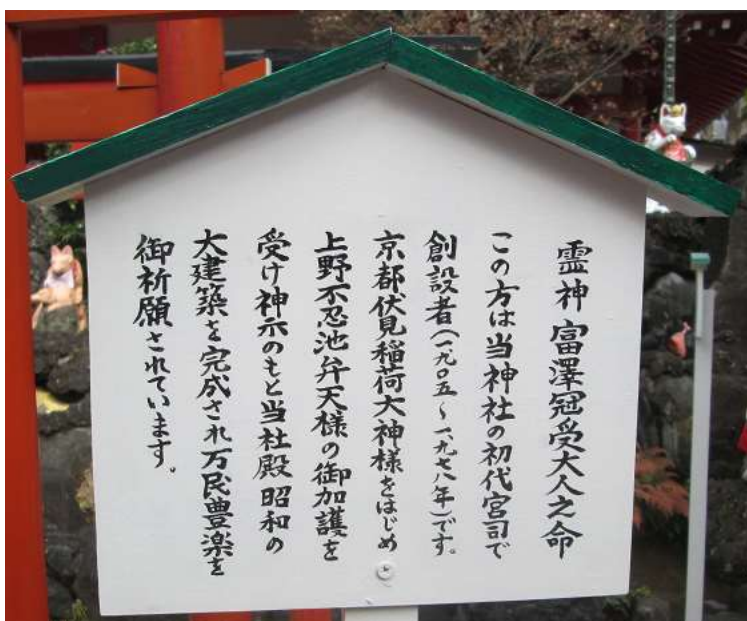 霊神 富澤冠受大人之命
この方は当神社の初代宮司で
創設者(一九〇五〜一九七八年)です。
京都伏見稲荷大神様をはじめ
上野不忍池弁天様の御加護を
受け神示のもと当社殿昭和の
大建築を完成され万民豊楽を
御祈願されています。